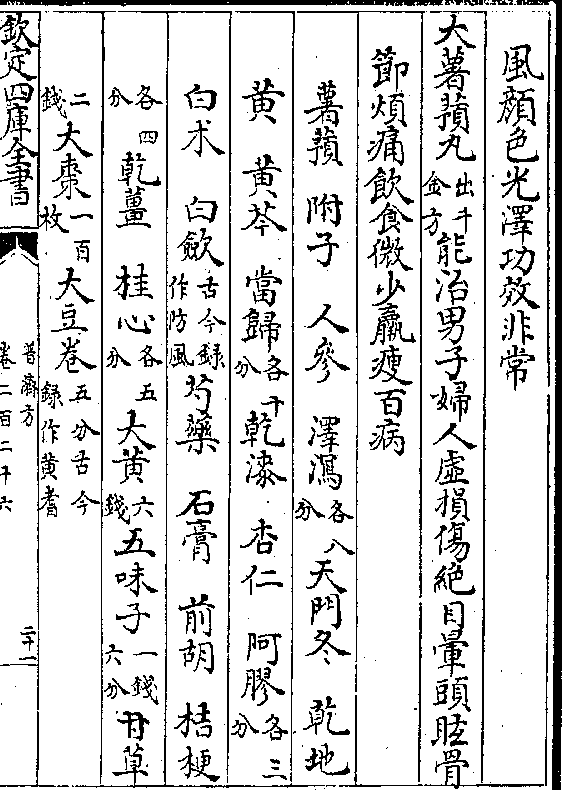 風顔色光澤功效非常
大薯蕷丸出千金方能治男子婦人虛損傷絶目暈頭眩骨
節煩痛飲食微少羸瘦百病
薯蕷 附子 人參 澤瀉各八分天門冬 乾地
黄 黄芩 當歸各十分乾漆 杏仁 阿膠各三分
白术 白歛古今録作防風芍藥 石膏 前胡 桔梗
各四分乾薑 桂心各五分大黄六錢五味子一錢六分甘草
二錢大棗一百枚大豆卷五分古今録作黄耆
欽定四庫全書
普濟方
卷二百二十六
二十一